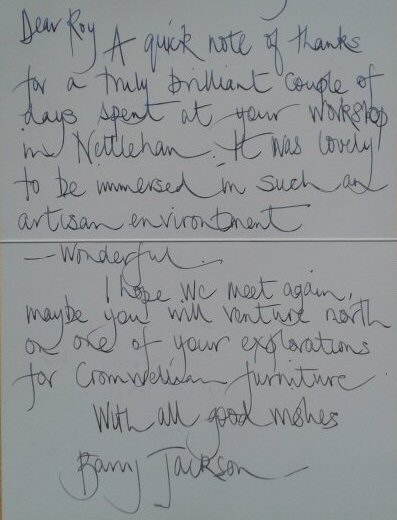 Dear Roy A quick note of thanks
for a truly brilliant couple of
days spent at your workshop
in Nettlehan. It was lovely
to be immersed in such an
artisan environtment
— Wonderful.
I hope we meet again,
maybe you will venture north
on one of your explorations
for Cromwellian furniture.
With all good wishes
Barry Jackson